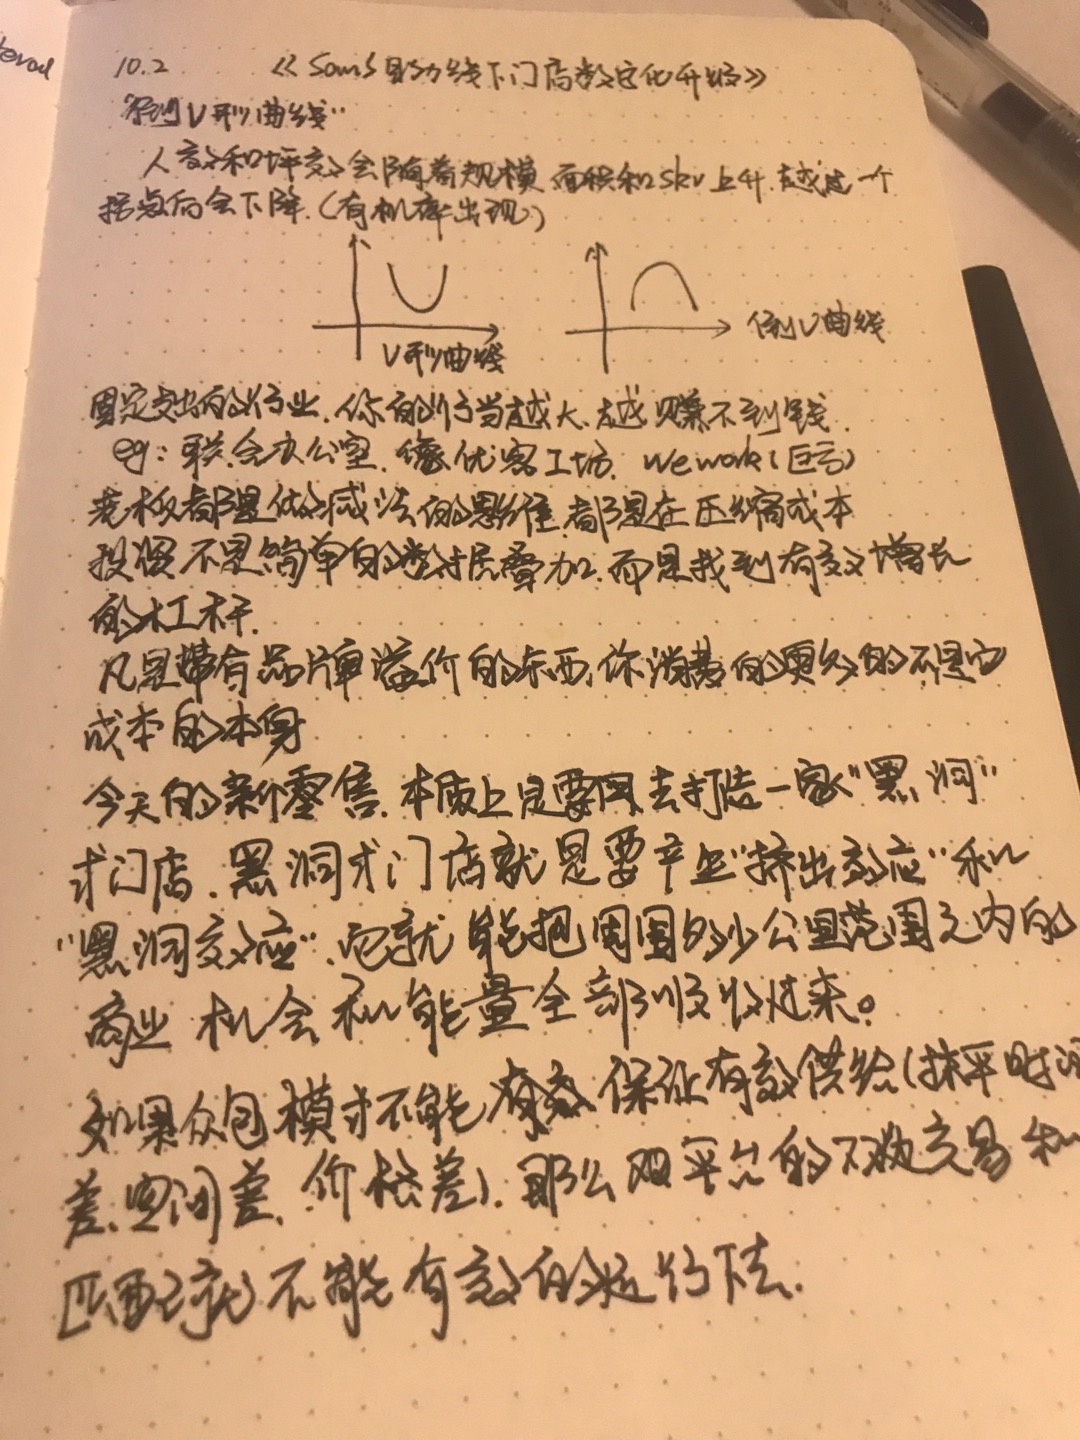 10.2 《SaaS助力线下门店数字化升级》
"倒U型曲线"
人效和坪效会随着规模、面积和sku上升、越过一个
拐点后会下降.(有机率出现)
U型曲线
倒U曲线
固定支出的行业.你的行当越大.越赚不到钱.
eg:联合办公室.像优客工场.wework(巨亏)
老板都是做减法的思维.都是在压缩成本
投资不是简单的 叠加.而是找到有效增长
的杠杆.
凡是带有品牌溢价的东西,你消费的更多的不是它
成本的本身
今天的新零售.本质上是要 去打造一家"黑洞"
式门店.黑洞式门店就是要产生"挤出效应"和
"黑洞效应".它就能把周围多少公里范围之内的
商业机会和能量全部吸收过来。
如果众包模式不能有效保证有效供给(抹平时间
差.空间差.价格差).那么双平台的 交易和
匹配就不能有效的运行下去.